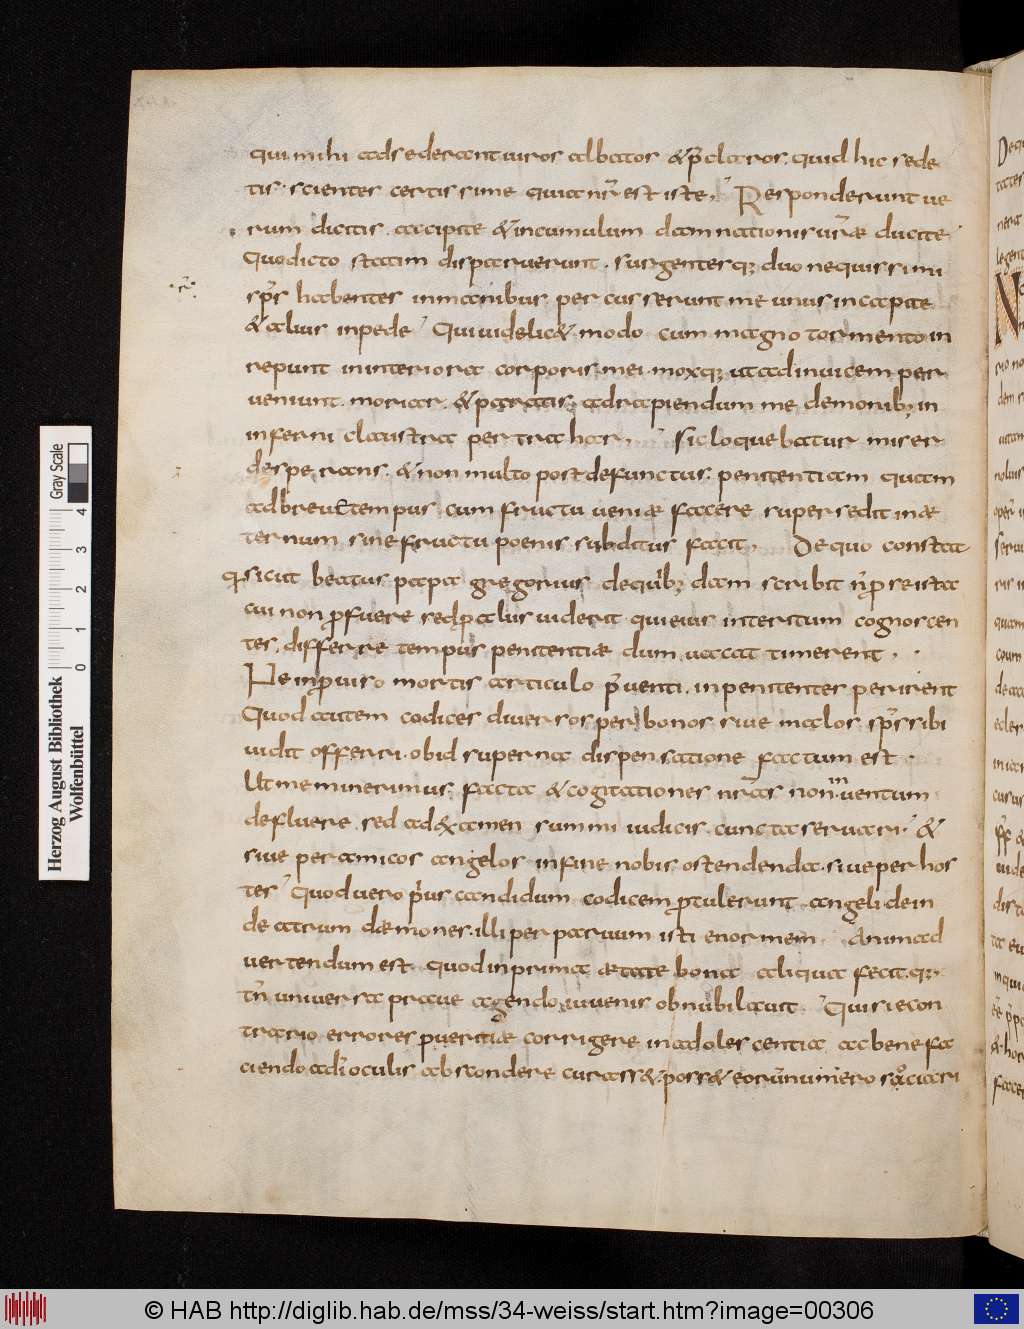 qui mihi adsederant uiros albatos &p̄claros, quid hic sede
tis · scientes certissime quia nr̄ est iste, Responderunt ue
rum dicitis . accipite & incumulum damnationis ur̄ae ducite
Quo dicto statim disparuerunt . surgentesq; duo nequissimi
sps̄ habentes inmanibus percusserunt me unus incapite
& alius inpede Qui uidelic& modo cum magno tormento in
repunt ininteriora corporis mei . moxq; ut adinuicem per
ueniunt . moriar . & paratis adrapiendum me demonib; in
inferni claustra pertrahar, Sic loquebatur miser
desperans . & non multo post defunctus . penitentiam quam
adbreue tempus cum fructu ueniae facere supersedit inae
ternum sine fructu poenis subditus facit, De quo constat
q sicut beatus papa gregorius dequib; dam scribit n̄ p se ista
cui non pfuere sed p alus uiderit . qui eius interitum cognoscen
tes, differre tempus penitentiae dum uacat timerent .
Ne inprouiso mortis articulo p̄uenti . inpenitentes perirent
Quod autem codices diuersos per bonos siue malos sps̄ sibi
uidit offerri . ob id superna dispensatione factum est .
Ut meminerimus facta & cogitationes nr̄as non in uentum
defluere . sed ad examen summi iudicis . cuncta seruari . &
siue per amicos angelos infine nobis ostendenda . siue per hos
tes Quod uero p̄us candidum codicem ptulerunt angeli dein
de atrum daemones . illi per paruum isti enormem . Animad
uertendum est quod inprima aetate bona aliqua fecit . q;
tn̄ uniuersa praue agendo iuuenis obnubilauit . Qui si econ
trario errores pueritiae corrigere inadolescentia ac bene fa
ciendo ad̄i oculis abscondere curass& . poss& eorum numero sociari
Herzog August Bibliothek
Wolfenbüttel
Gray Scale
0 1 2 3 4
© HAB http://diglib.hab.de/mss/34-weiss/start.htm?image=00306